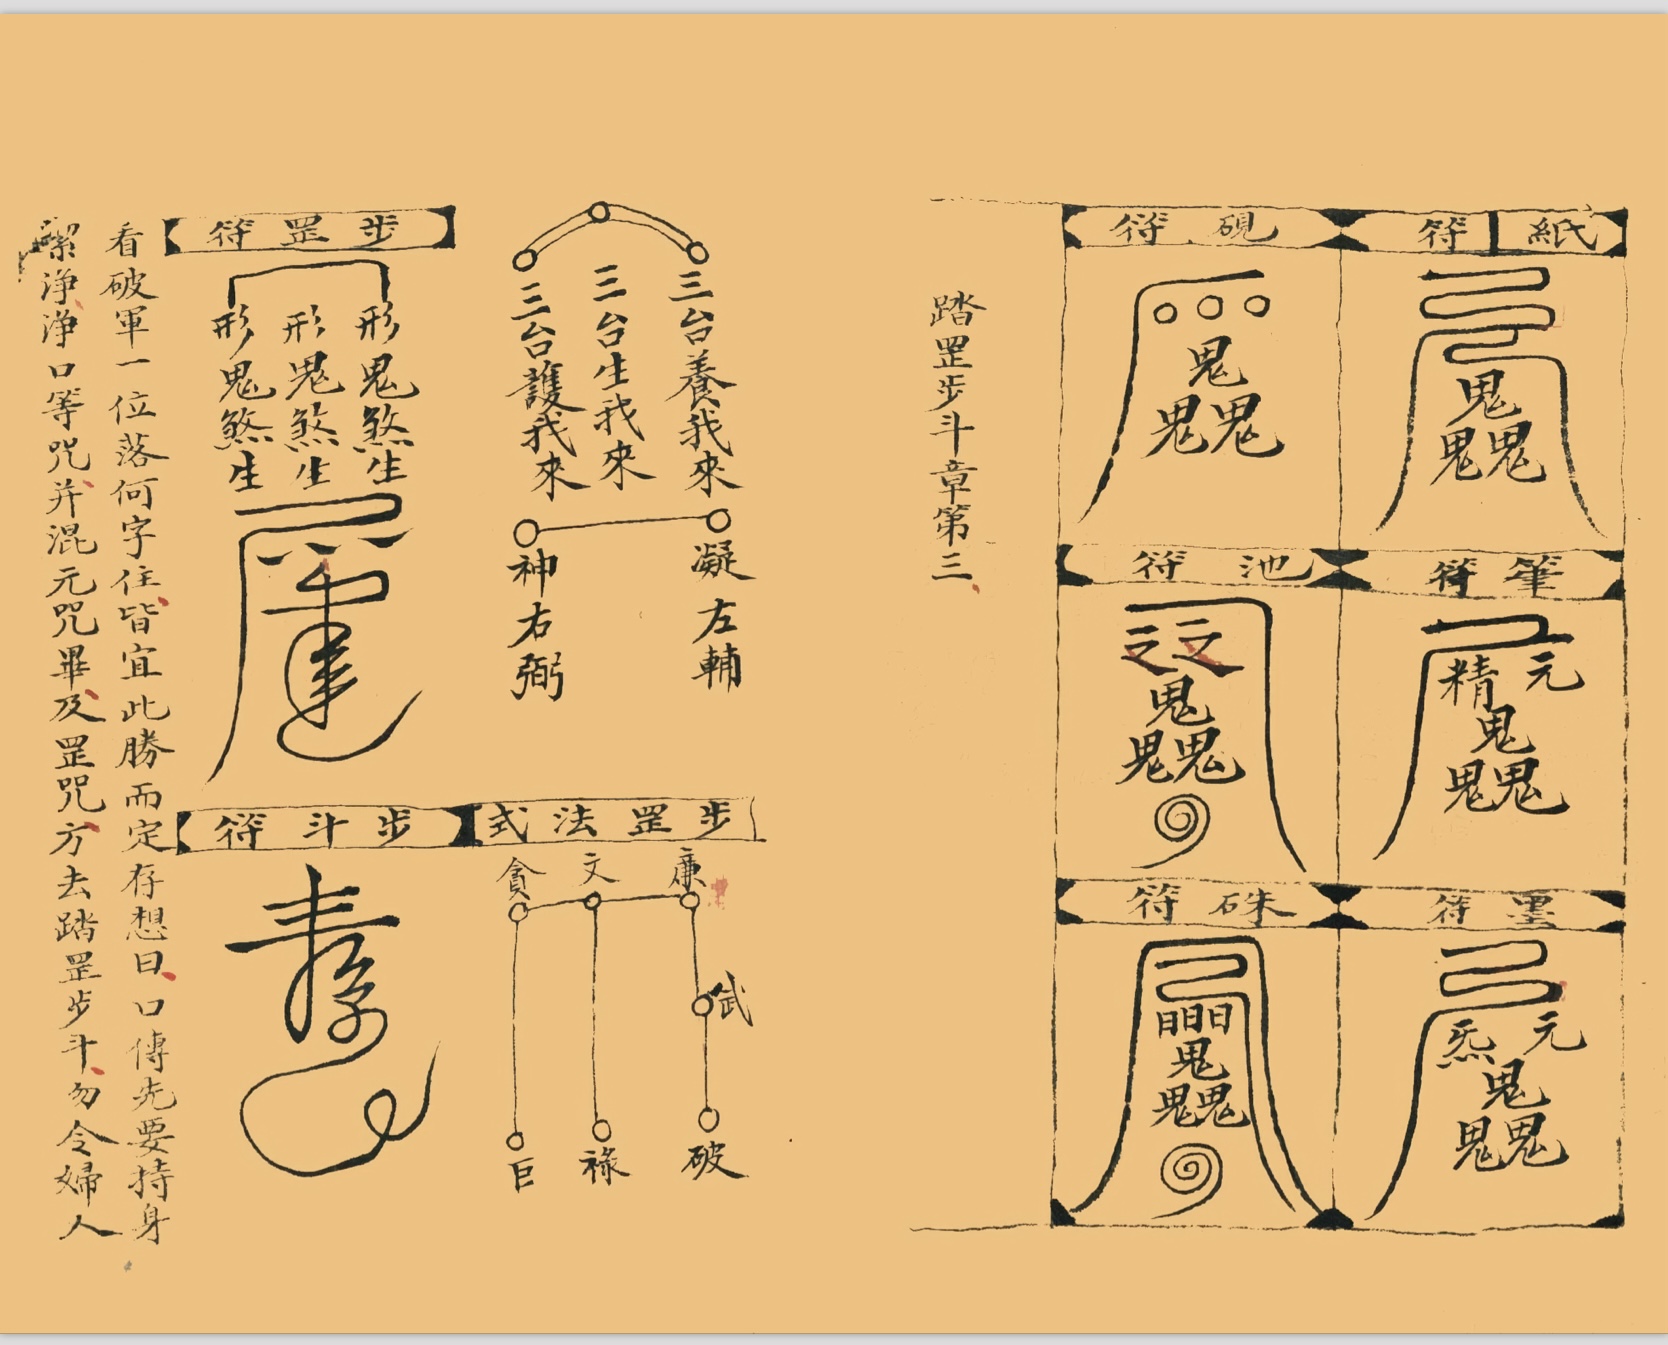 紙符
鬼
鬼鬼
硯符
鬼
鬼鬼
筆符
元
精
鬼
鬼鬼
池符
鬼
鬼鬼
墨符
元
炁
鬼
鬼鬼
硃符
日日日
鬼
鬼鬼
踏罡步斗章第三
三台養我來
三台生我來
三台護我來
凝左輔
神右弼
步罡法式
廉
文
貪
武
破
祿
巨
步罡符
形鬼煞生
形鬼煞生
形鬼煞生
步斗符
看破軍一位落何字住皆宜此勝而定存想日口傳先要持身
潔淨淨口等咒并混元咒畢及罡咒方去踏罡步斗勿令婦人